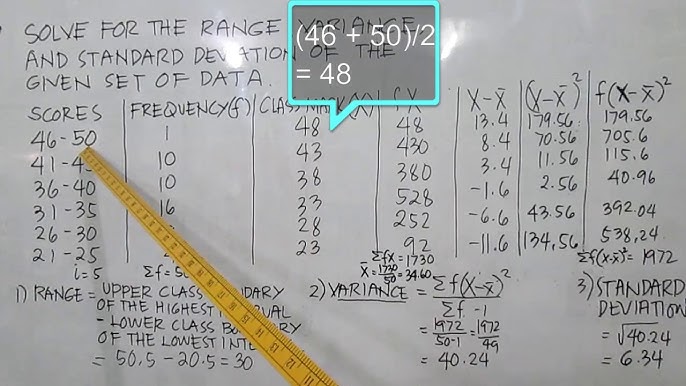 SOLVE FOR THE RANGE, VARIANCE,
AND STANDARD DEVIATION OF THE
GIVEN SET OF DATA.
(46 + 50)/2
= 48
SCORES FREQUENCY(f) CLASS MARK(X) fX X-X̄ (X-X̄)² f(X-X̄)²
46-50 1 48 48 13.4 179.56 179.56
41- 10 43 430 8.4 70.56 705.6
36-40 10 38 380 3.4 11.56 115.6
31-35 16 33 528 -1.6 2.56 40.96
26-30 28 252 -6.6 43.56 392.04
21-25 23 92 -11.6 134.56 538.24
i=5 Σf=50 ΣfX=1730 Σf(X-X̄)²=1972
X̄=1730/50=34.60
1) RANGE= UPPER CLASS BOUNDARY
OF THE HIGHEST INTERVAL
- LOWER CLASS BOUNDARY
OF THE LOWEST
= 50.5-20.5=30
2) VARIANCE = Σf(X-X̄)²
Σf-1
= 1972/50-1 = 1972/49
= 40.24
3) STANDARD
DEVIATION
= √40.24
= 6.34